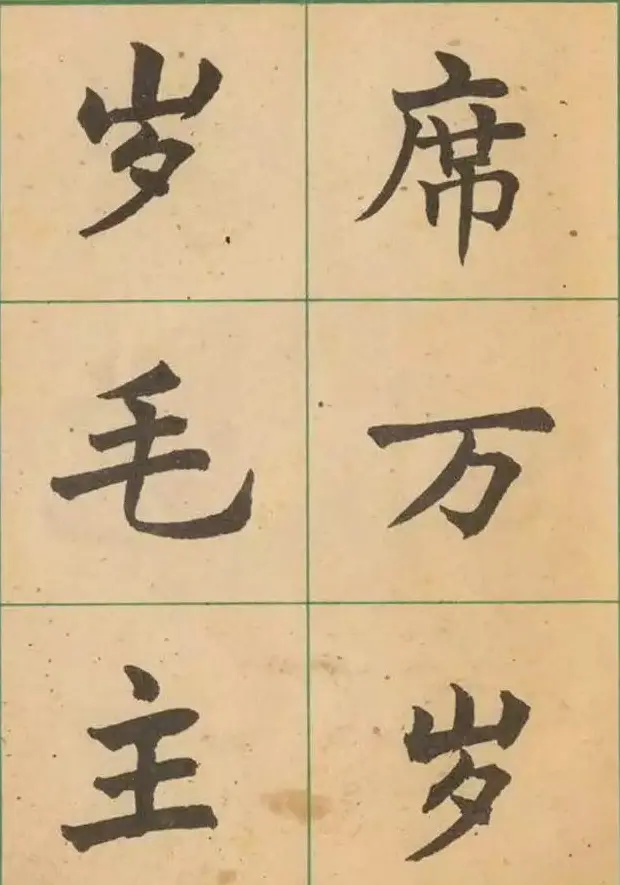 席万岁
岁毛主